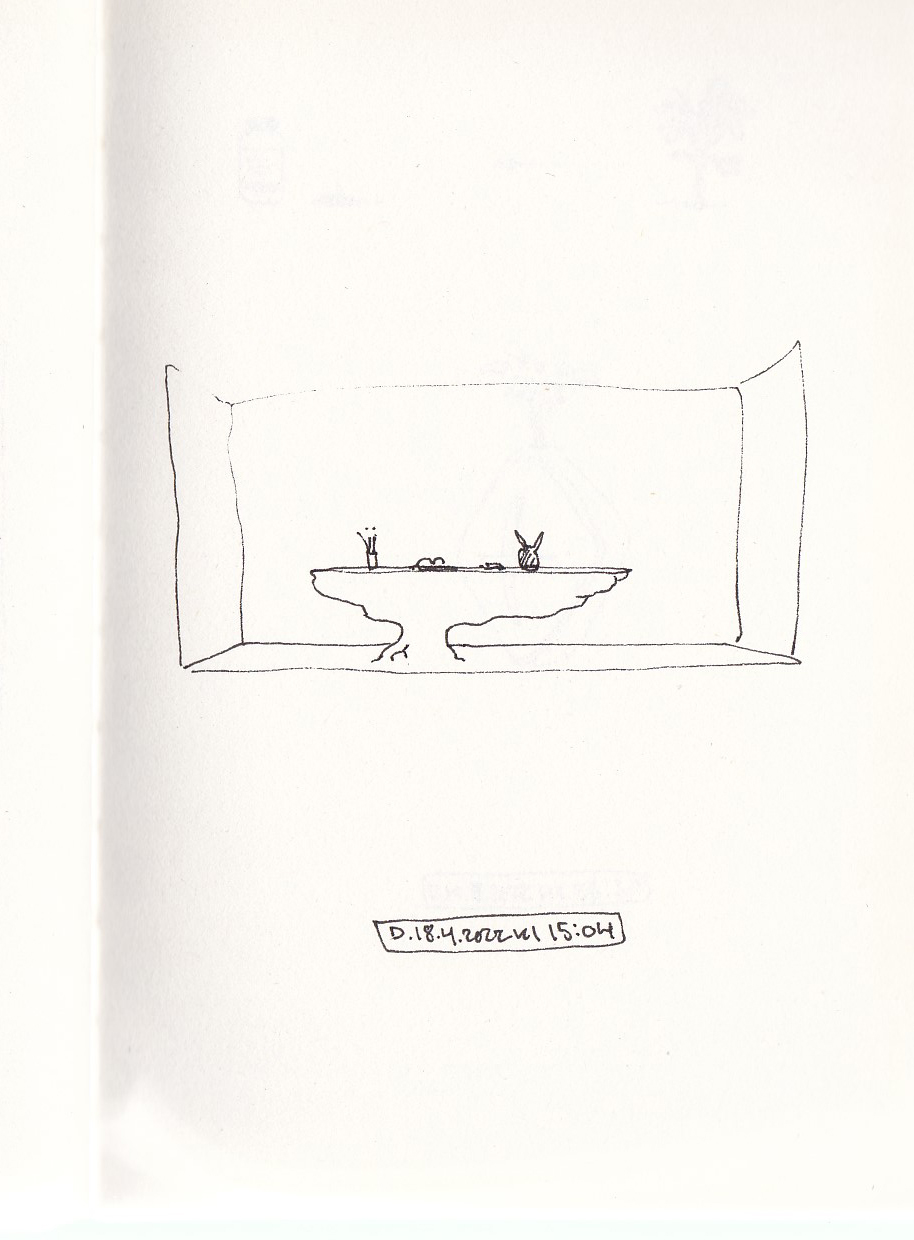 D.18.4.2022 kl 15:04